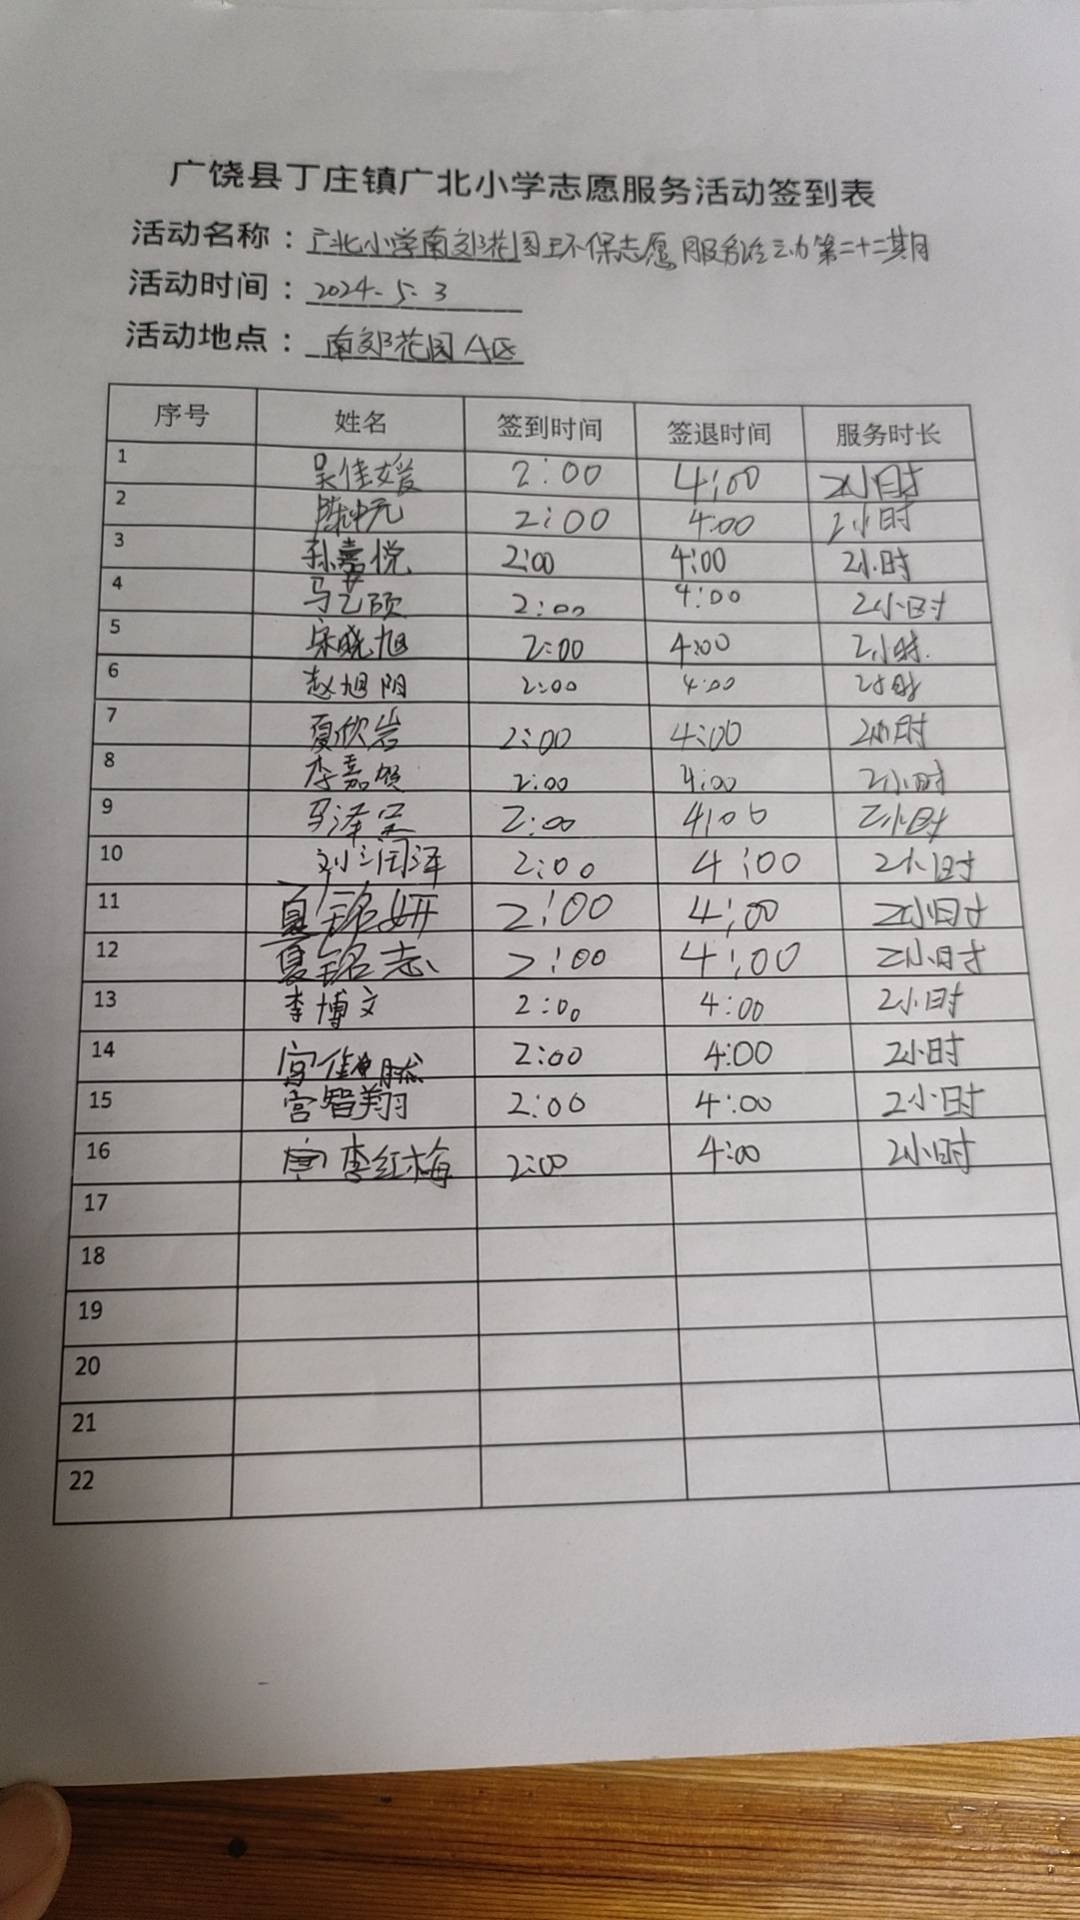 广饶县丁庄镇广北小学志愿服务活动签到表
活动名称：广北小学南郊花园环保志愿服务活动第二十二期
活动时间：2024.5.3
活动地点：南郊花园A区
序号 姓名 签到时间 签退时间 服务时长
1 吴佳媛 2:00 4:00 2小时
2 陈冲元 2:00 4:00 2小时
3 孙嘉悦 2:00 4:00 2小时
4 马艺硕 2:00 4:00 2小时
5 宋晓旭 2:00 4:00 2小时.
6 赵旭阳 2:00 4:00 2小时
7 夏欣岩 2:00 4:00 2小时
8 李嘉贺 2:00 4:00 2小时
9 马泽 2:00 4:00 2小时
10 刘润泽 2:00 4:00 2小时
11 夏铭妍 2:00 4:00 2小时
12 夏铭志 2:00 4:00 2小时
13 李博文 2:00 4:00 2小时
14 宫佳 2:00 4:00 2小时
15 宫智翔 2:00 4:00 2小时
16 李红梅 2:00 4:00 2小时
17
18
19
20
21
22